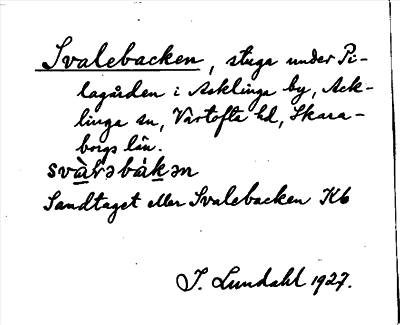 Svalebacken, stuga under Pi-
lagården i Acklinga by, Ack-
linga sn, Vartofta hd, Skara-
borgs län.
svàləbàkən
Sandtaget eller Svalebacken Kb
J. Lundahl 1927.